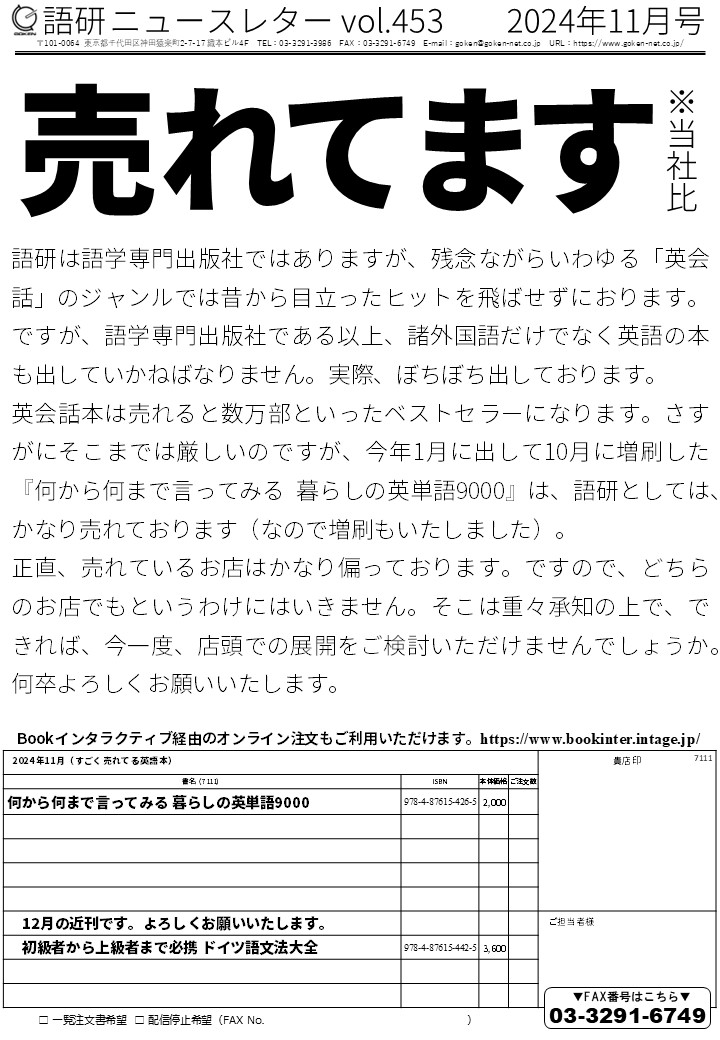 GOKEN 語研ニュースレター vol.453 2024年11月号
〒101-0064 東京都千代田区神田猿楽町2-7-17 織本ビル4F TEL：03-3291-3986 FAX：03-3291-6749 E-mail：goken@goken-net.co.jp URL：https://www.goken-net.co.jp/
売れてます
※当社比
語研は語学専門出版社ではありますが、残念ながらいわゆる「英会
話」のジャンルでは昔から目立ったヒットを飛ばせずにおります。
ですが、語学専門出版社である以上、諸外国語だけでなく英語の本
も出していかねばなりません。実際、ぼちぼち出しております。
英会話本は売れると数万部といったベストセラーになります。さす
がにそこまでは厳しいのですが、今年1月に出して10月に増刷した
『何から何まで言ってみる 暮らしの英単語9000』は、語研としては、
かなり売れております（なので増刷もいたしました）。
正直、売れているお店はかなり偏っております。ですので、どちら
のお店でもというわけにはいきません。そこは重々承知の上で、で
きれば、今一度、店頭での展開をご検討いただけませんでしょうか。
何卒よろしくお願いいたします。
Bookインタラクティブ経由のオンライン注文もご利用いただけます。https://www.bookinter.intage.jp/
2024年11月（すごく売れてる英語本） 貴店印 7111
書名（7111） ISBN 本体価格 ご注文数
何から何まで言ってみる 暮らしの英単語9000 978-4-87615-426-5 2,000
12月の近刊です。よろしくお願いいたします。 ご担当者様
初級者から上級者まで必携 ドイツ語文法大全 978-4-87615-442-5 3,600
▼FAX番号はこちら▼
03-3291-6749
□ 一覧注文書希望 □ 配信停止希望（FAX No. ）